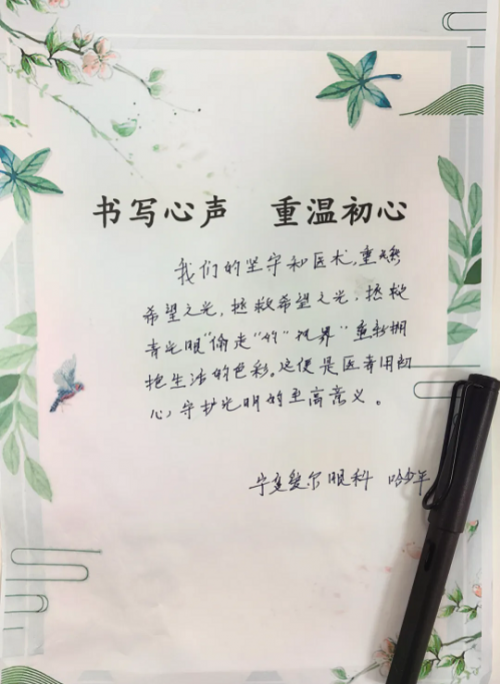 书写心声 重温初心
我们的坚守和医术,重燃
希望之光,拯救希望之光,拯救
青光眼"偷走"的"视界"重新拥
抱生活的色彩。这便是医者用初
心,守护光明的至高意义。
宁夏爱尔眼科 哈少年